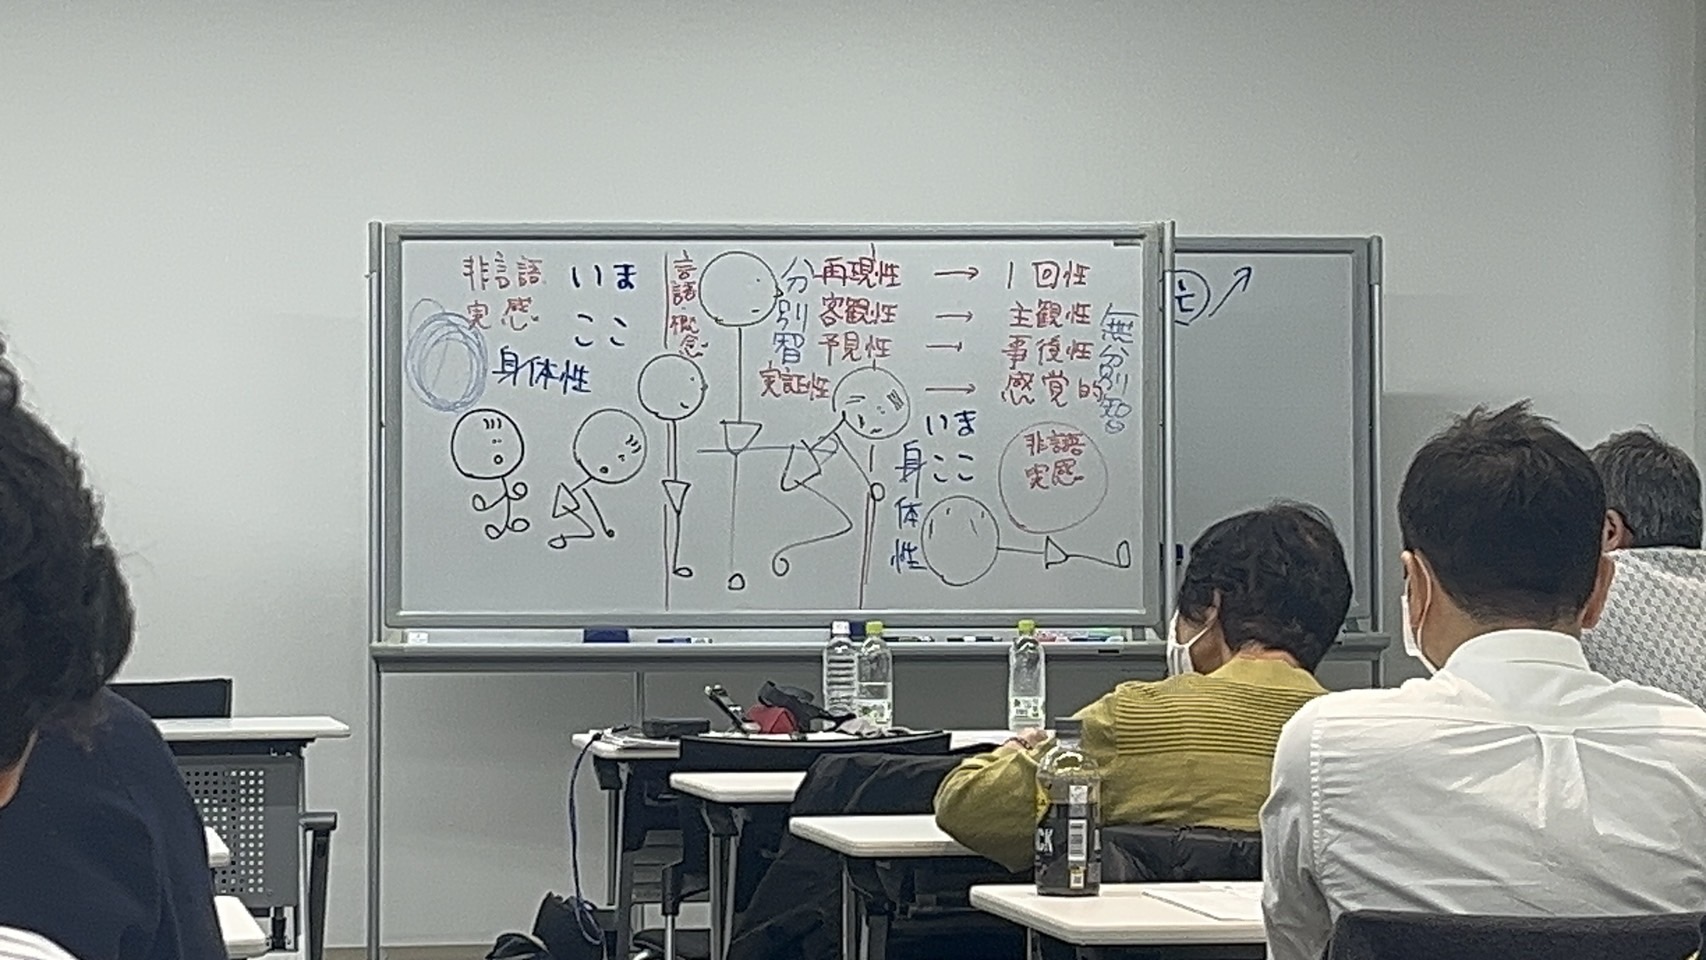 非言語
実感
いま
ここ
身体性
言語・概念
分別智
再現性 → 1回性
客観性 → 主観性
予見性 → 事後性
実証性 → 感覚的
無分別智
いま
ここ
身体性
非言語
実感
亡
CK